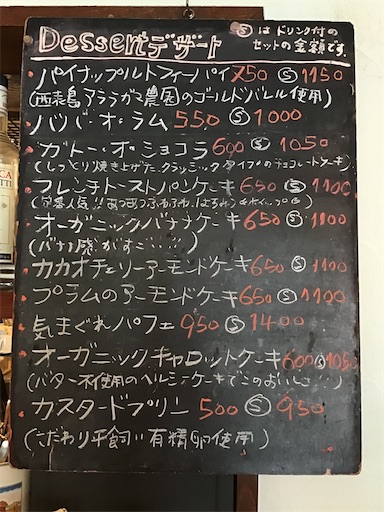 Dessert デザート
Ⓢはドリンク付の
セットの金額です。
パイナップルトフィーパイ 750 Ⓢ 1150
(西表島アララガマ農園のゴールドバレル使用)
ババ・オ・ラム 550 Ⓢ 1000
ガトー・オ・ショコラ 600 Ⓢ 1050
(しっとり焼き上げた、クラシックタイプのチョコレートケーキ)
フレンチトーストパンケーキ 650 Ⓢ 1100
(定番人気!! あつあつふわふわ、はちみつ&ホイップ)
オーガニックバナナケーキ 650 Ⓢ 1100
(バナナ感がすごい…!!!)
カカオチェリーアーモンドケーキ 650 Ⓢ 1100
プラムのアーモンドケーキ 650 Ⓢ 1100
気まぐれパフェ 950 Ⓢ 1400
オーガニックキャロットケーキ 600 Ⓢ 1050
(バター不使用のヘルシーケーキでこのおいしさ…!)
カスタードプリン 500 Ⓢ 950
(こだわり平飼い有精卵使用)